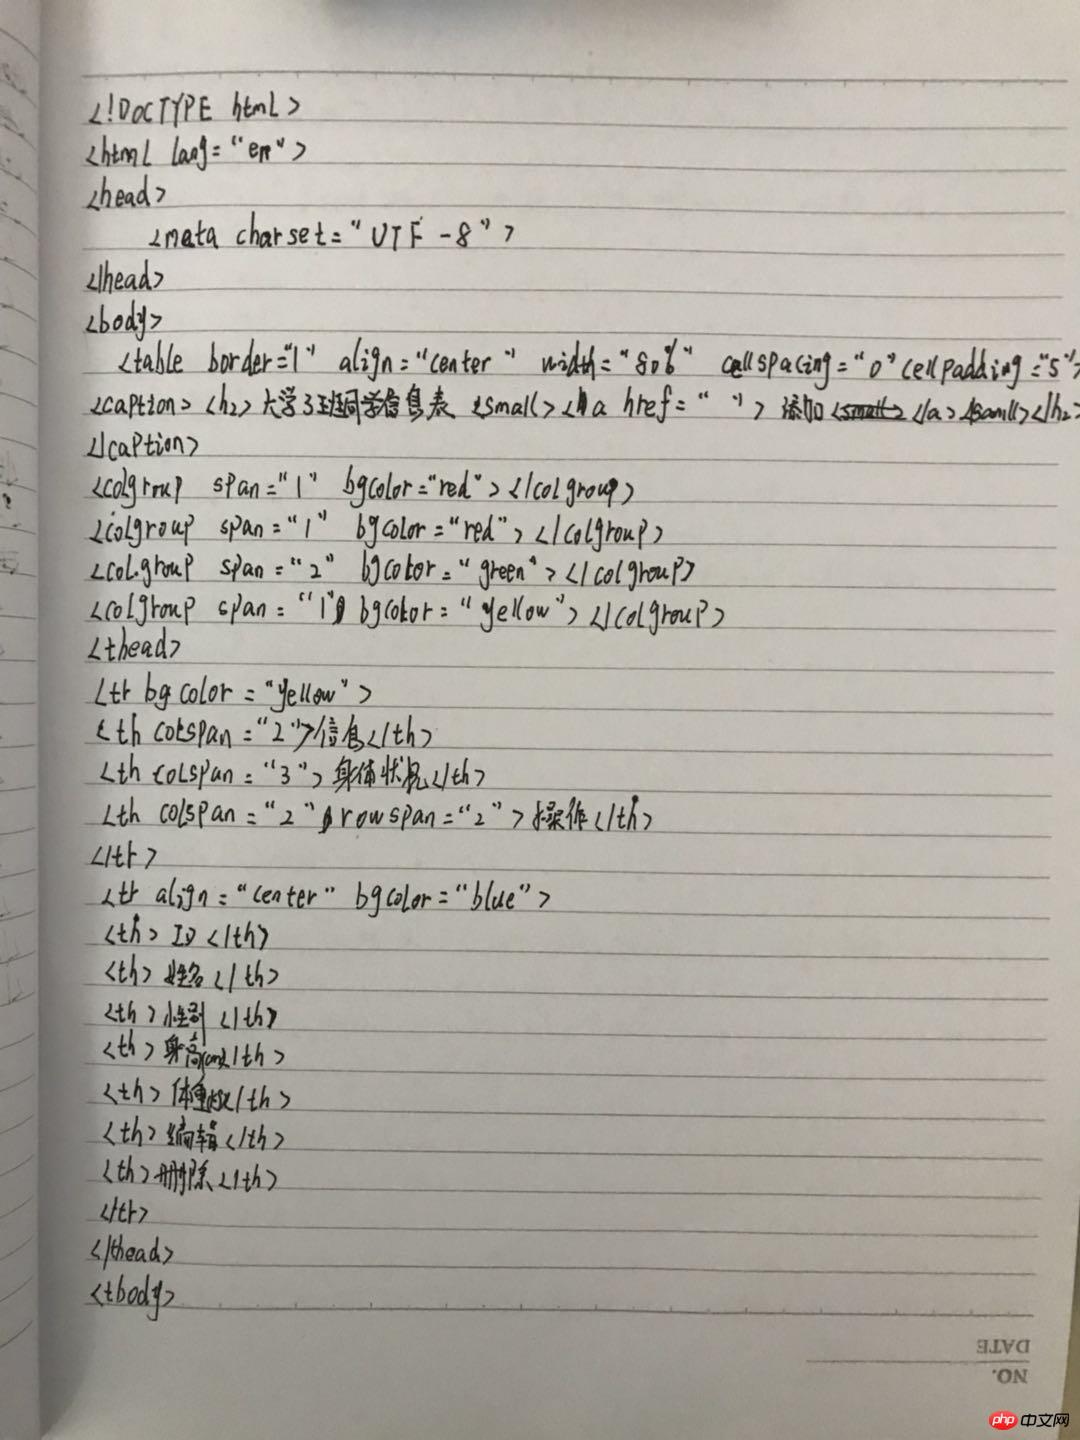 <!DOCTYPE html>
<html lang="en">
<head>
<meta charset="UTF-8">
</head>
<body>
<table border="1" align="center" width="80%" cellspacing="0" cellpadding="5">
<caption><h2>大学3班同学信息表<small><a href=" ">添加</a></samll></h2>
</caption>
<colgroup span="1" bgcolor="red"></colgroup>
<colgroup span="1" bgcolor="red"></colgroup>
<colgroup span="2" bgcolor="green"></colgroup>
<colgroup span="1" bgcolor="yellow"></colgroup>
<thead>
<tr bgcolor="yellow">
<th colspan="2">信息</th>
<th colspan="3">身体状况</th>
<th colspan="2" rowspan="2">操作</th>
</tr>
<tr align="center" bgcolor="blue">
<th>ID</th>
<th>姓名</th>
<th>性别</th>
<th>身高</th>
<th>体重</th>
<th>编辑</th>
<th>删除</th>
</tr>
</thead>
<tbody>
DATE
NO.
php 中文网